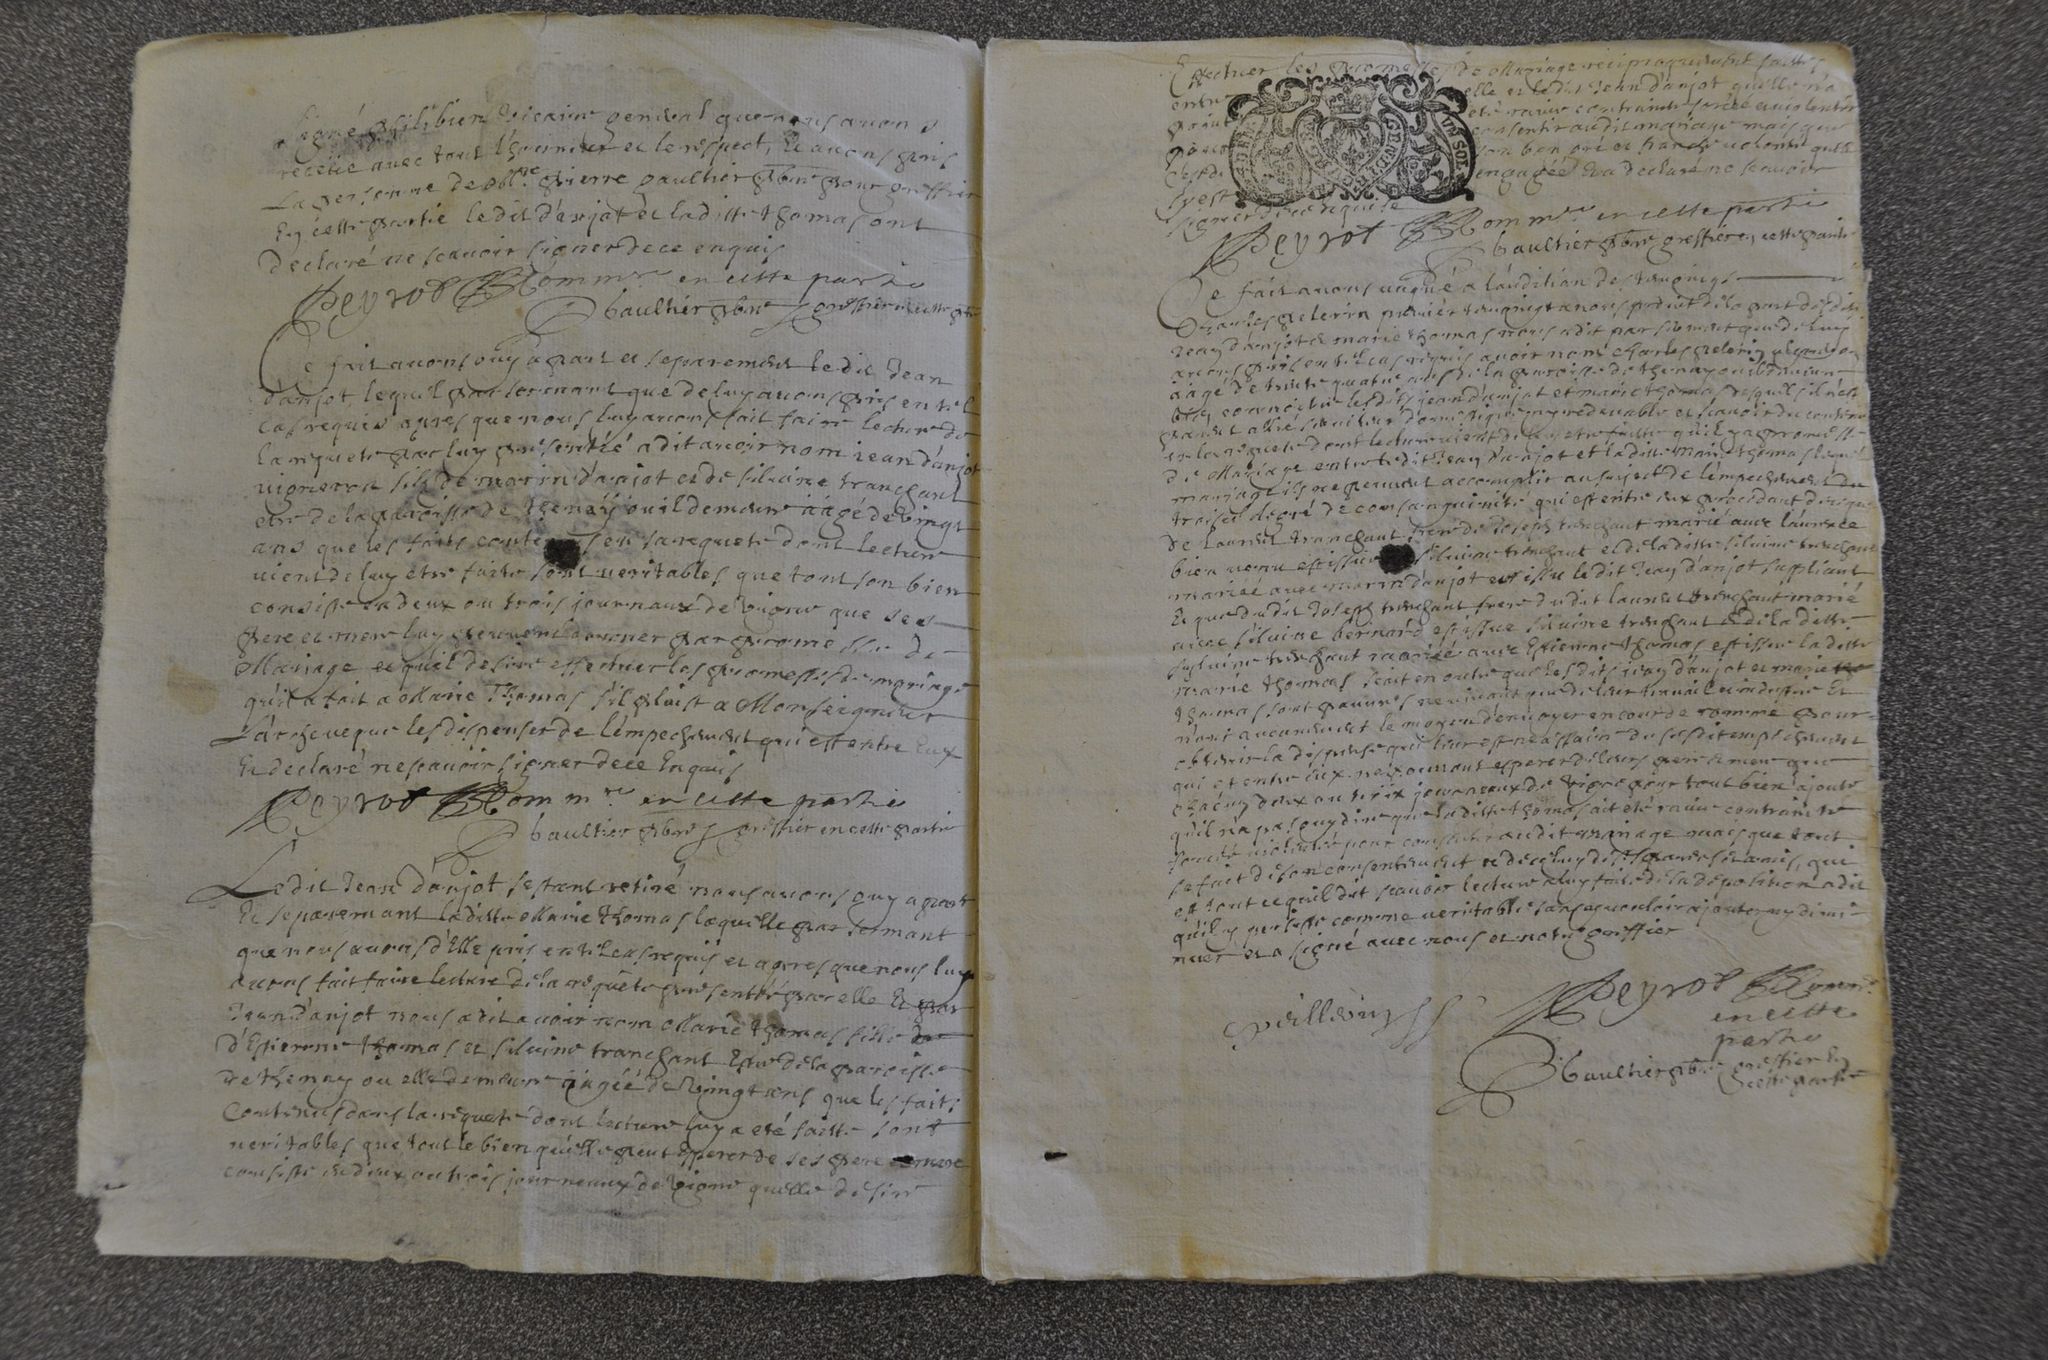 signé philibien vicaire general que nous avons
receüe avec tout l'honneur et le respect, Et avons pris
La personne de Mre pierre gaultier pbre pour greffier
En cette partie ledit d'anjot et laditte thomas ont
declaré ne scavoir signer de ce enquis
Peyrot Comm.re en cette partie
Gaultier pbre greffier en cette ptie
Ce fait avons ouy apart et separement ledit Jean
d'anjot, lequel par serment que de luy avons pris en tel
cas requis apres que nous luy avons fait faire lecture de
la requete par luy presentée a dit avoir nom jean d'anjot
vigneron fils de marin d'anjot et de silvine tranchant
etre de la paroisse de thenay ou il demeure aâgé de vingt
ans que les faits contenus en sa requete dont lecture
vient de luy etre faite sont veritables que tout son bien
consiste en deux ou trois journaux de vigne que ses
pere et mere luy peuvent donner par promesse de
Mariage et qu'il desire effectuer les promesses de mariage
qu'il a fait a Marie Thomas s'il plaist a Monseigneur
L'archeveque les dispenser de l'empechement qui est entre Eux
Et declaré ne scavoir signer de ce Enquis
Peyrot Comm.re en cette partie
Gaultier pbre greffier en cette partie
Ledit Jean d'anjot s'estant retiré nous avons ouy apart
Et separement laditte Marie thomas laquelle par serment
que nous avons d'Elle pris en tel cas requis et apres que nous luy
avons fait faire lecture de la requete presentée par elle Et par
Jean d'anjot nous a dit avoir nom Marie thomas fille
d'Estienne thomas et silvine tranchant Etre de la paroisse
de thenay ou elle demeure aâgée de vingt ans que les faits
Contenus dans la requete dont lecture luy a eté faitte sont
veritables que tout le bien qu'elle peut Esperer de ses pere et mere
consiste en deux ou trois journaux de vigne quelle desire
Effectuer les promesses de Mariage reciproquement faittes
entre elle et ledit Jehan d'anjot quelle n'a
eté ravie contrainte forcée ny violentée
consentir audit mariage mais que
son bon gré et franche volonté quelle
engagée Et a declaré ne scavoir
signer de ce enquise
UN SOL
Peyrot Comm.re en cette partie
Gaultier pbre greffier en cette partie
Ce fait avons vaqué a l'audition des temoings
Charles pelerin premier temoing a nous produit de la part desdits
Jean d'anjot et marie thomas nous a dit par serment que de luy
avons pris en tel cas requis avoir nom charles pelerin
aâgé de trente quatre ans de la paroisse de thenay ou il demeure
connoitre lesdits jean d'anjot et marie thomas desquels il n'est
parent allié serviteur domestique ny redevable et scavoir du contenu
en la requete dont lecture vient de luy etre faitte qu'il y a promesse
de Mariage entre ledit Jean d'anjot et laditte marie thomas lequel
mariage ils ne peuvent accomplir au sujet de l'empechement du
trois.e degré de consanguinité qui est entre eux procedant de ce que
de laurent tranchant frere de Joseph tranchant marié avec laurence
bien venu est issue silvine tranchant et de laditte silvine tranchant
mariée avec marin d'anjot est issu ledit Jean d'anjot suppliant
Et que dudit Joseph tranchant frere dudit laurent tranchant marié
avec silvine bernard est issue silvine tranchant et de laditte
sylvine tranchant mariée avec Estienne thomas est issue laditte
marie thomas scait en outre que lesdits jean d'anjot et marie
thomas sont pauvres ne vivant que de leur travail et industrie Et
n'ont aucunement le moyen d'envoyer en cour de romme pour
obtenir la dispense qui leur est necessaire du susdit empechement
qui est entre eux ne pouvant esperer de leurs pere et mere que
chacun deux ou trois journaux de vigne pour tout bien ajoute
qu'il n'a pas ouy dire que laditte thomas ait eté ravie contrainte
forcée violentée pour consentir audit mariage mais que tout
se fait de son consentement et de celuy de ses parens et amis, qui
est tout ce qu'il dit scavoir lecture a luy faite de sa deposition a dit
qu'il y persiste comme veritable sans y vouloir ajouter ny dimi
nuer et a signé avec nous et notre greffier
Peyrot Comm.re
en cette
partie
Gaultier pbre greffier En
cette partie